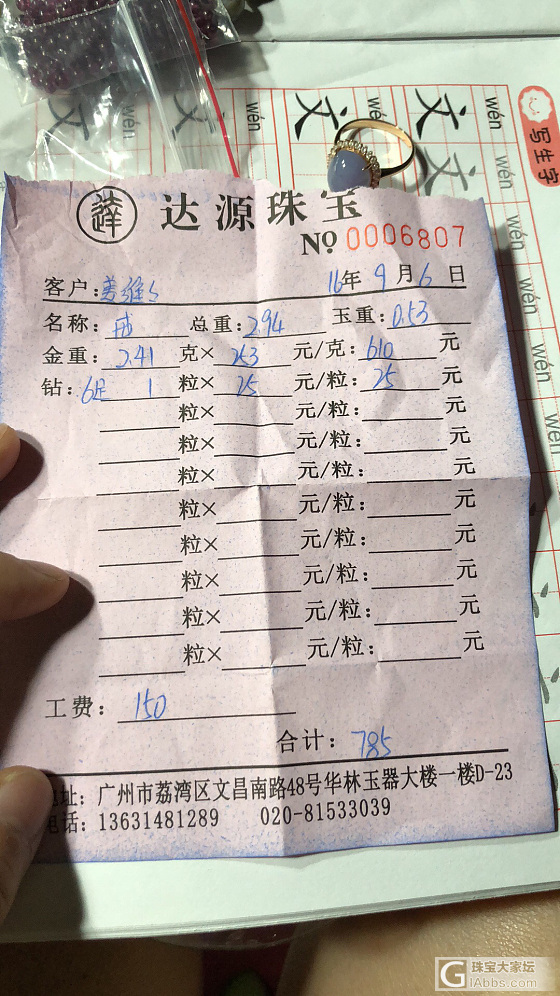 wén wén wén wén
文 文 文
写生字
達 达源珠宝
№ 0006807
客户: 16年9月6日
名称: 戒 总重: 2.94 玉重: 0.53
金重: 2.41 克× 253 元/克: 610 元
钻: 1 粒× 25 元/粒: 25 元
粒× 元/粒: 元
粒× 元/粒: 元
粒× 元/粒: 元
粒× 元/粒: 元
粒× 元/粒: 元
粒× 元/粒: 元
粒× 元/粒: 元
粒× 元/粒: 元
工费: 150
合计: 785
地址: 广州市荔湾区文昌南路48号华林玉器大楼一楼D-23
电话: 13631481289 020-81533039
珠宝大家坛
GIAbbs.com